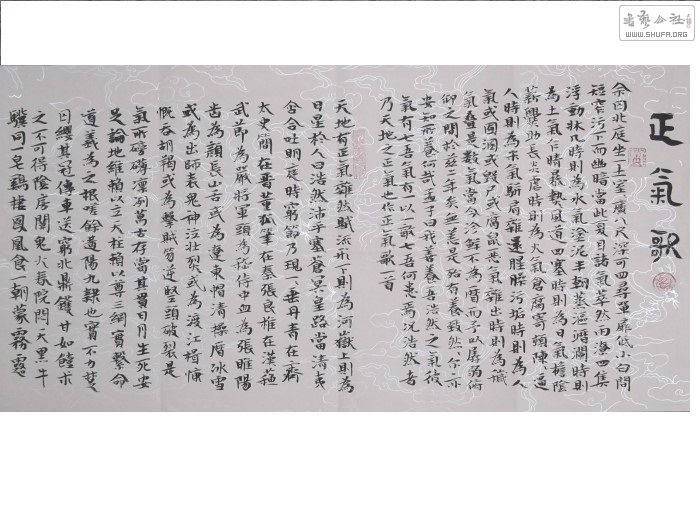 書藝公社
WWW.SHUFA.ORG
正氣歌
余囚北庭坐一土室廣八尺深可四尋單扉低小白間
短窄污下而幽暗當此夏日諸氣萃然雨潦四集
浮動牀几時則為水氣塗泥半朝蒸漚歷瀾時則
為土氣乍晴暴熱風道四塞時則為日氣檐陰
薪爨助長炎虐時則為火氣倉腐寄頓陳陳逼
人時則為米氣駢肩雜遝腥臊污垢時則為人
氣或圊溷或毀尸或腐鼠惡氣雜出時則為穢
氣疊是數氣當之鮮不為厲而予以孱弱俯
仰之間於茲二年矣無恙是殆有養致然爾亦
安知所養何哉孟子曰我善養吾浩然之氣彼
氣有七吾氣有一以一敵七吾何患焉況浩然者
乃天地之正氣也作正氣歌一首
天地有正氣雜然賦流形下則為河嶽上則為
日星於人曰浩然沛乎塞蒼冥皇路當清夷
含和吐明庭時窮節乃現一垂丹青在齊
太史簡在晉董狐筆在秦張良椎在漢蘇
武節為嚴將軍頭為嵇侍中血為張睢陽
齒為顏常山舌或為遼東帽清操厲冰雪
或為出師表鬼神泣壯烈或為渡江楫慷
慨吞胡羯或為擊賊笏逆豎頭破裂是
氣所磅礴凜烈萬古存當其貫日月生死安
足論地維賴以立天柱賴以尊三綱實繫命
道義為之根嗟余遘陽九隸也實不力楚
囚纓其冠傳車送窮北鼎鑊甘如飴求
之不可得陰房闃鬼火春院閟天黑牛
驥同一皂雞棲鳳凰食一朝蒙霧露